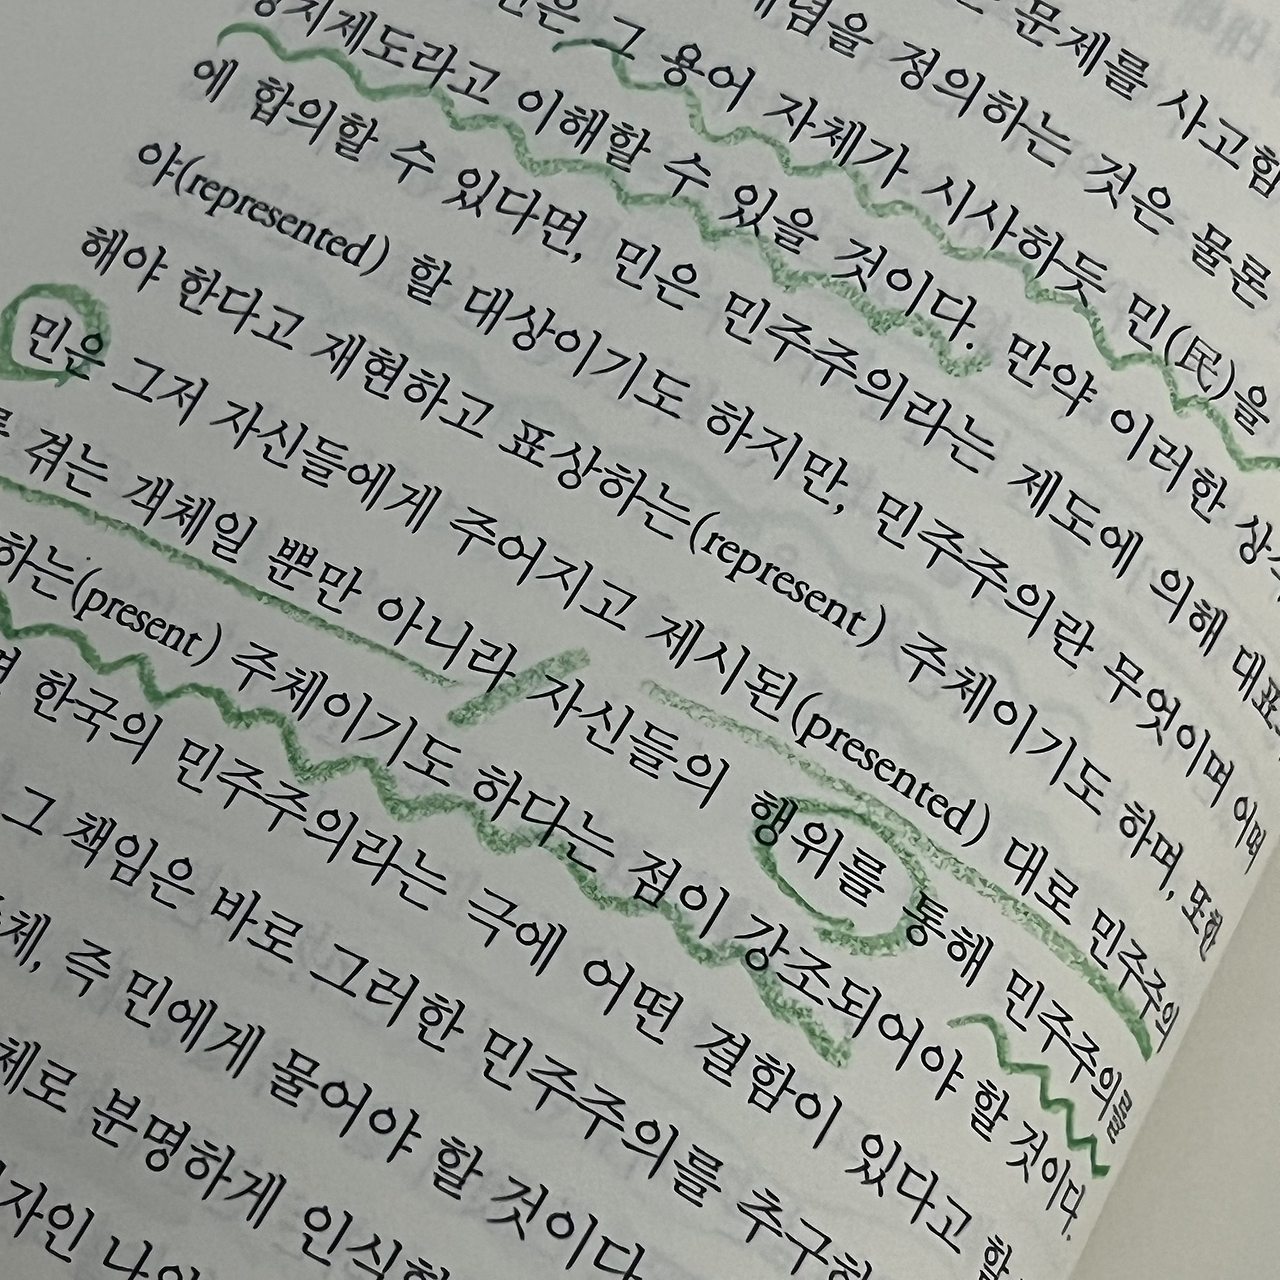 문제를 사고함
정의하는 것은 물론
그 용어 자체가 시사하듯 민(民)을
정치제도라고 이해할 수 있을 것이다. 만약 이러한
에 합의할 수 있다면, 민은 민주주의라는 제도에 의해
야(represented) 할 대상이기도 하지만, 민주주의란 무엇이며
해야 한다고 재현하고 표상하는(represent) 주체이기도 하며, 또한
민은 그저 자신들에게 주어지고 제시된(presented) 대로 민주주의
를 겪는 객체일 뿐만 아니라 자신들의 행위를 통해 민주주의를
하는(present) 주체이기도 하다는 점이 강조되어야 할 것이다.
한국의 민주주의라는 극에 어떤 결함이 있다고 할
그 책임은 바로 그러한 민주주의를
체, 즉 민에게 물어야 할 것이다
체로 분명하게